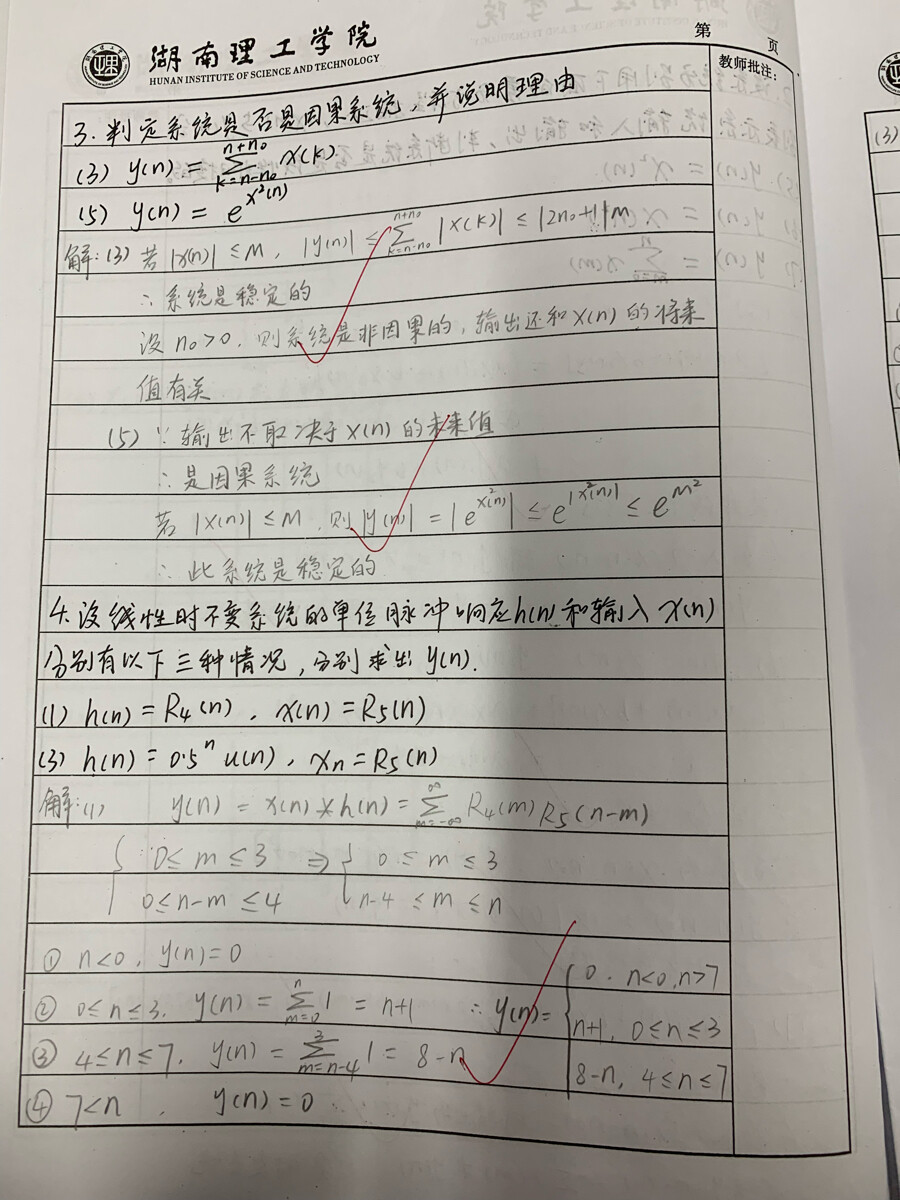 湖南理工学院
HUNAN INSTITUTE OF SCIENCE AND TECHNOLOGY
第 页
教师批注:
3. 判定系统是否是因果系统, 并说明理由
(3) y(n) = ∑_{k=n-n₀}^{n+n₀} x(k).
(5) y(n) = e^{x²(n)}
解: (3) 若 |x(n)| ≤ M, |y(n)| ≤ ∑_{k=n-n₀}^{n+n₀} |x(k)| ≤ |2n₀+1|M
∴ 系统是稳定的
设 n₀>0, 则系统是非因果的, 输出还和x(n)的将来
值有关
(5) ∵ 输出不取决于x(n)的未来值
∴ 是因果系统
若 |x(n)| ≤ M, 则|y(n)| = |e^{x²(n)}| ≤ e^{|x²(n)|} ≤ e^{M²}
∴ 此系统是稳定的
4. 设线性时不变系统的单位脉冲响应h(n)和输入x(n)
分别有以下三种情况, 分别求出y(n).
(1) h(n) = R₄(n), x(n) = R₅(n)
(3) h(n) = 0.5ⁿ u(n), xn = R₅(n)
解: (1) y(n) = x(n) * h(n) = ∑_{m=-∞}^{∞} R₄(m) R₅(n-m)
{ 0 ≤ m ≤ 3 ⇒ { 0 ≤ m ≤ 3
0 ≤ n-m ≤ 4 n-4 ≤ m ≤ n
① n<0, y(n) = 0
② 0 ≤ n ≤ 3, y(n) = ∑_{m=0}^{n} 1 = n+1
③ 4 ≤ n ≤ 7, y(n) = ∑_{m=n-4}^{3} 1 = 8-n
④ 7<n, y(n) = 0
∴ y(n) = { 0. n<0, n>7
n+1, 0 ≤ n ≤ 3
8-n, 4 ≤ n ≤ 7
(3)